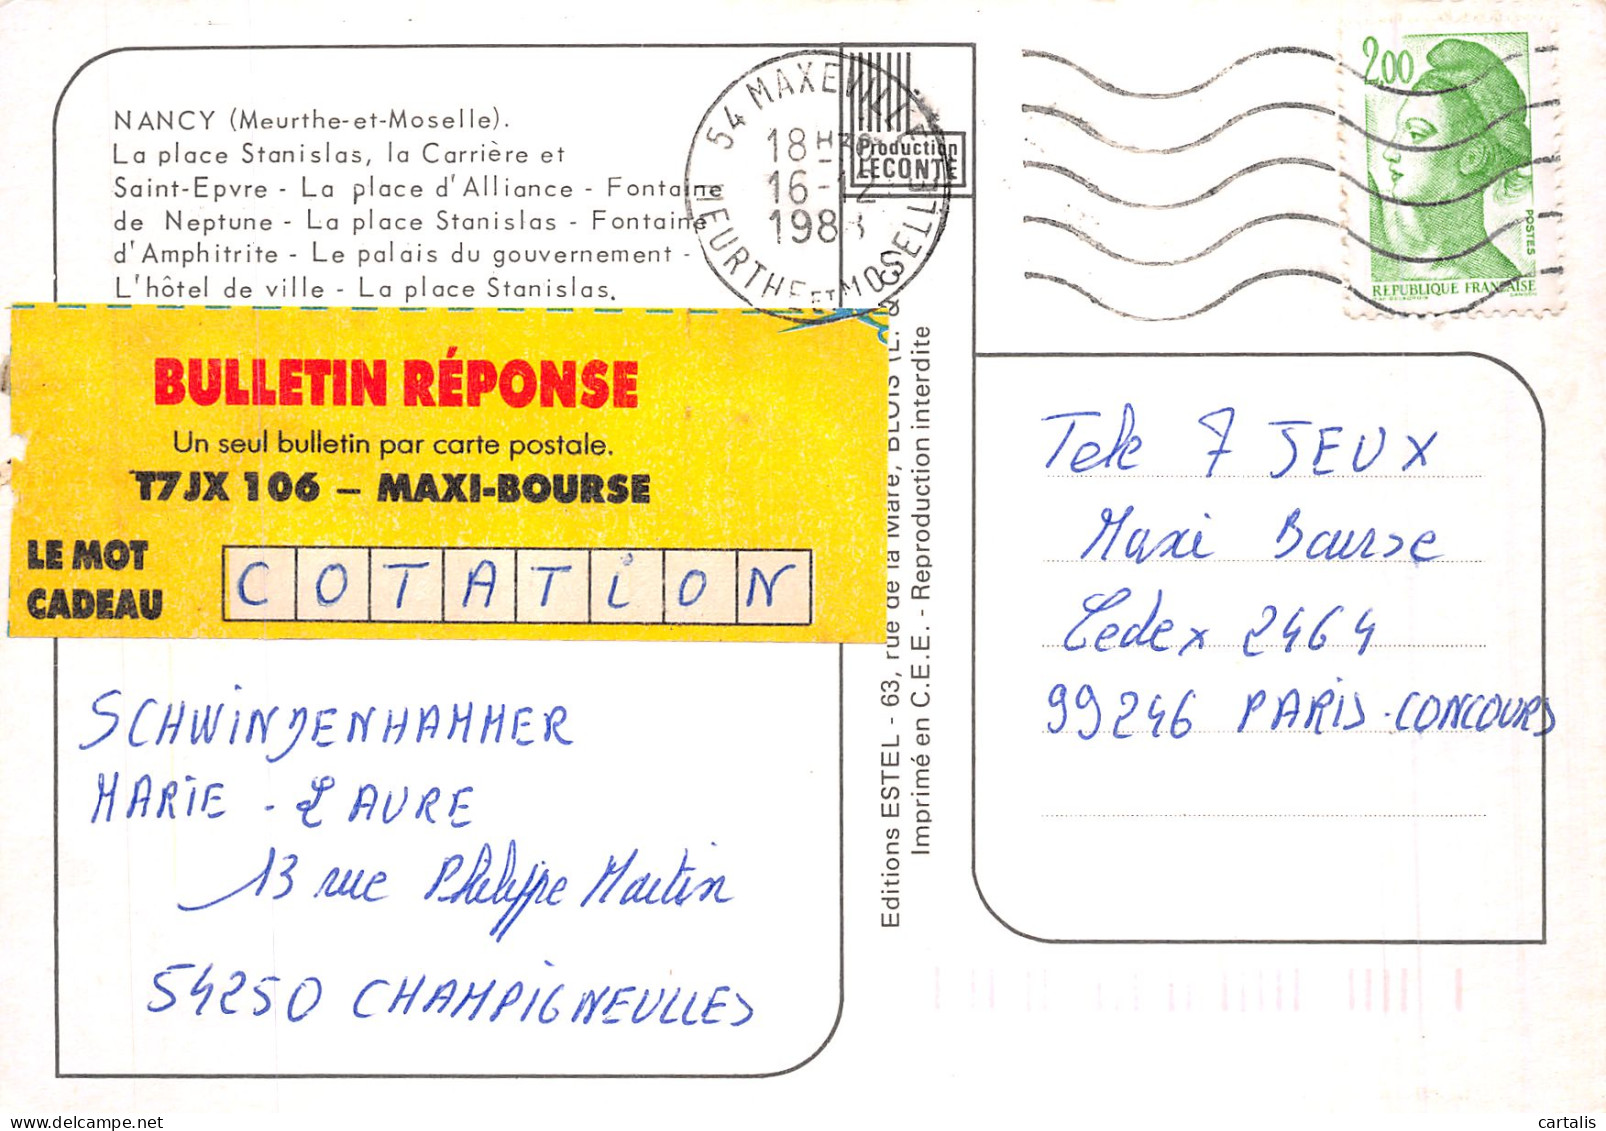 NANCY (Meurthe-et-Moselle).
La place Stanislas, la Carrière et
Saint-Epvre - La place d'Alliance - Fontaine
de Neptune - La place Stanislas - Fontaine
d'Amphitrite - Le palais du gouvernement -
L'hôtel de ville - La place Stanislas.
54 MAXEVILLE
18 H
16-12
1988
MEURTHE ET MOSELLE
Production
LECONTE
2,00
POSTES
REPUBLIQUE FRANÇAISE
BULLETIN RÉPONSE
Un seul bulletin par carte postale.
T7JX 106 – MAXI-BOURSE
LE MOT
CADEAU
COTATION
SCHWINDENHAMMER
MARIE - LAURE
13 rue Philippe Martin
54250 CHAMPIGNEULLES
Editions ESTEL - 63, rue de la Mare, BLOIS (L. &
Imprimé en C.E.E. - Reproduction interdite
Tele 7 JEUX
Maxi Bourse
Cedex 2464
99246 PARIS-CONCOURS
cartalis